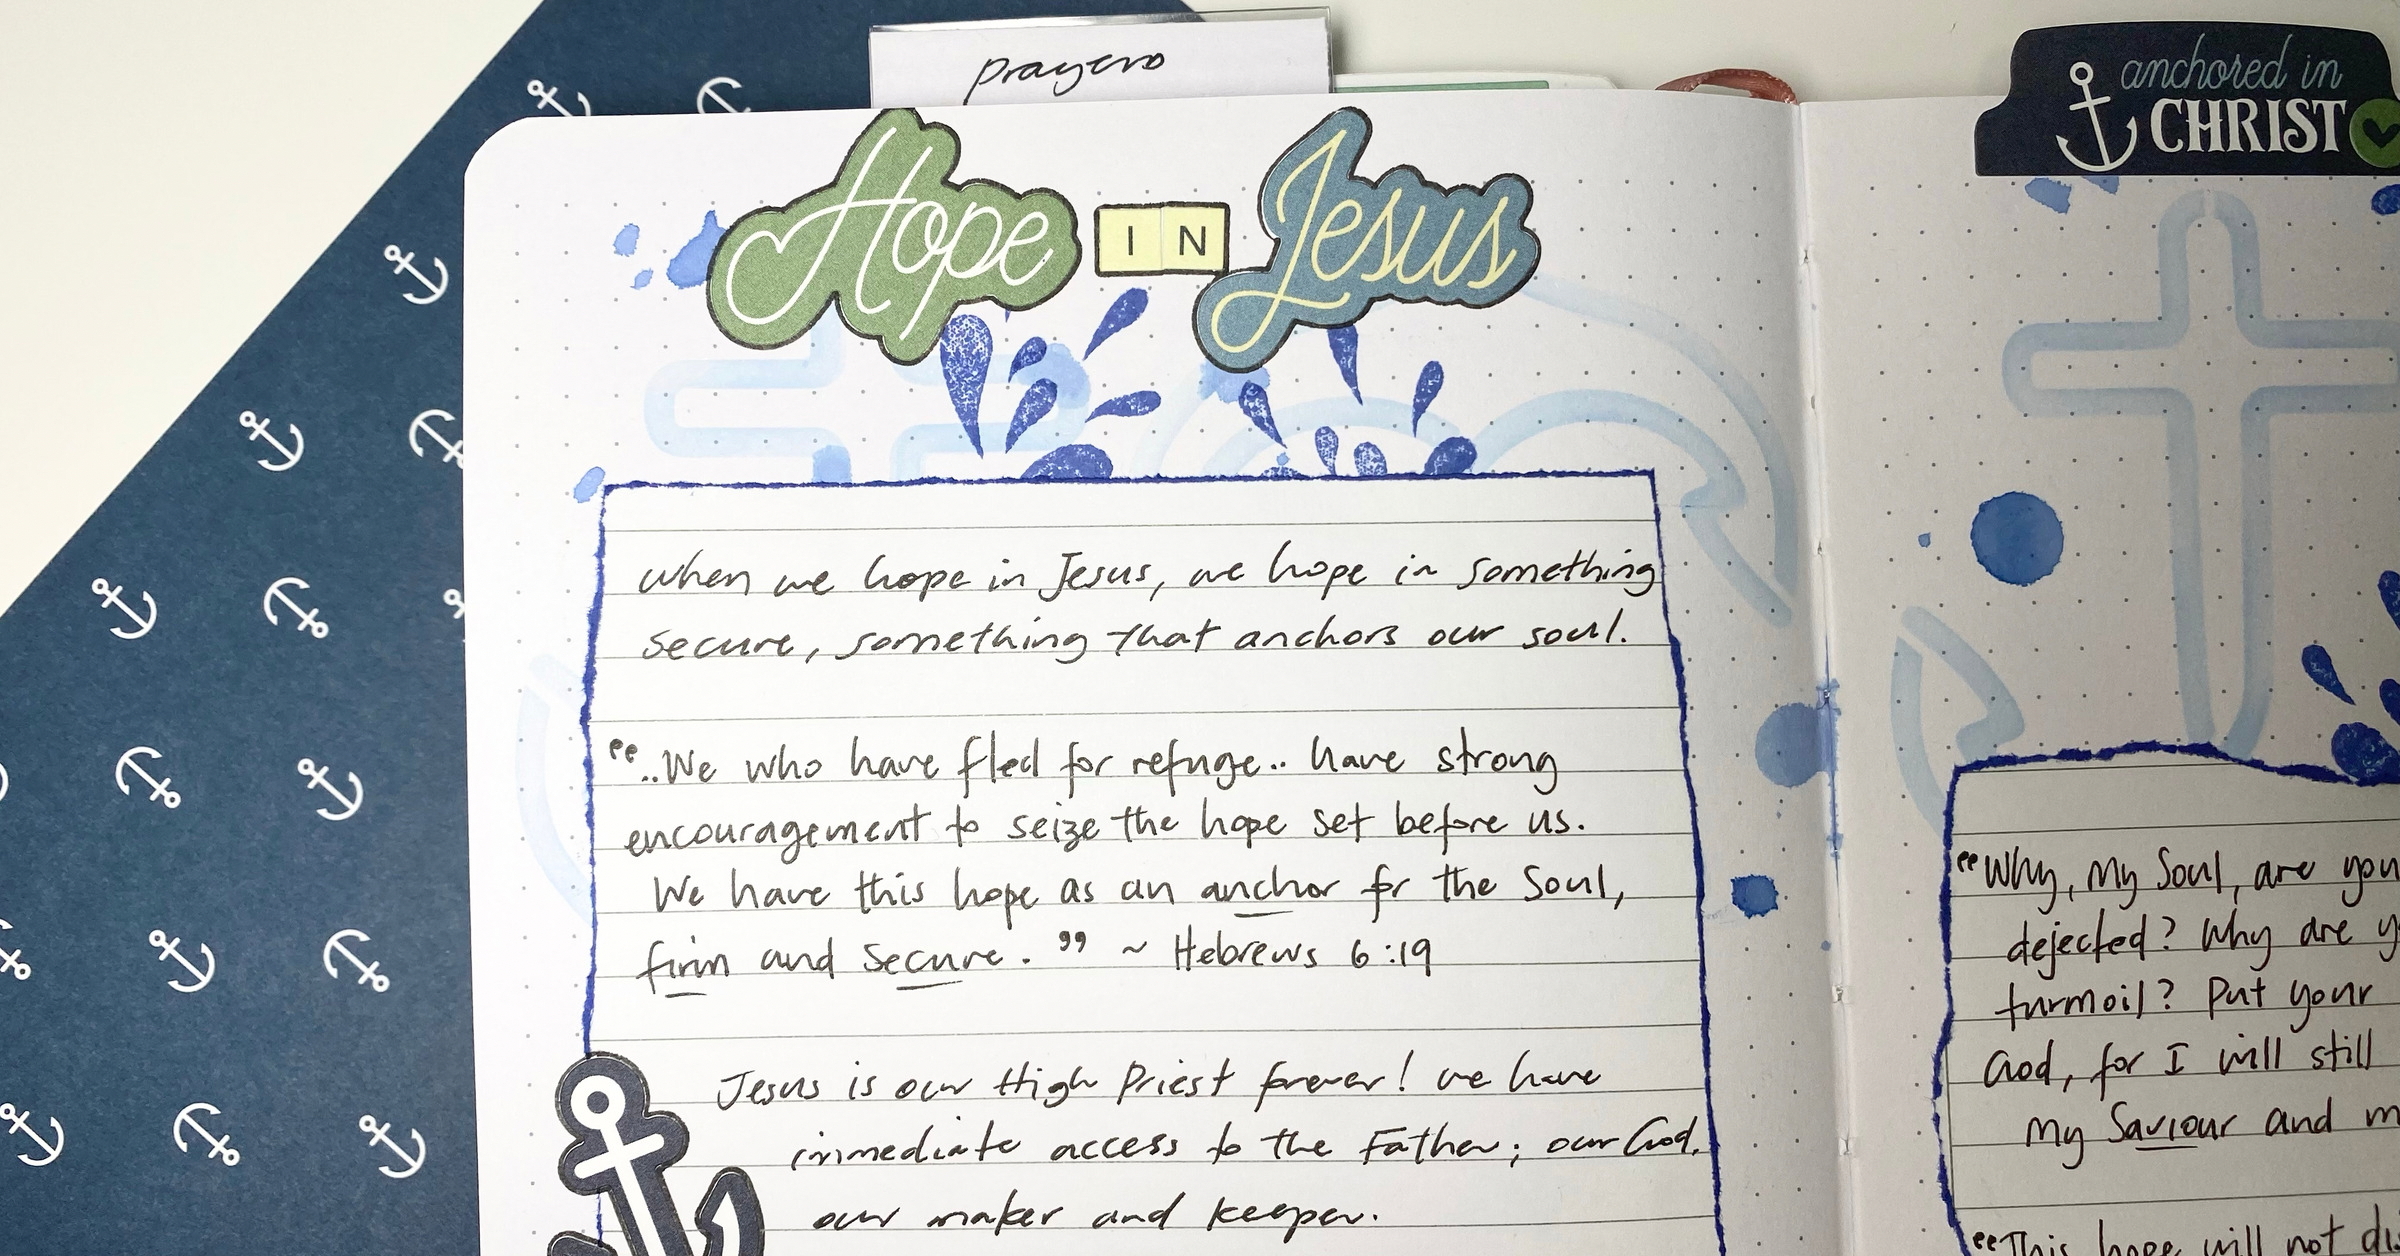 prayers
Hope IN Jesus
when we hope in Jesus, we hope in something
secure, something that anchors our soul.
"..We who have fled for refuge.. have strong
encouragement to seize the hope set before us.
We have this hope as an anchor for the Soul,
firm and secure." ~ Hebrews 6:19
Jesus is our High Priest forever! we have
immediate access to the Father; our God,
our maker and keeper.
anchored in
CHRIST
"Why, my Soul, are you
dejected? Why are
turmoil? Put your
God, for I will still
my Saviour and
"This hope will not